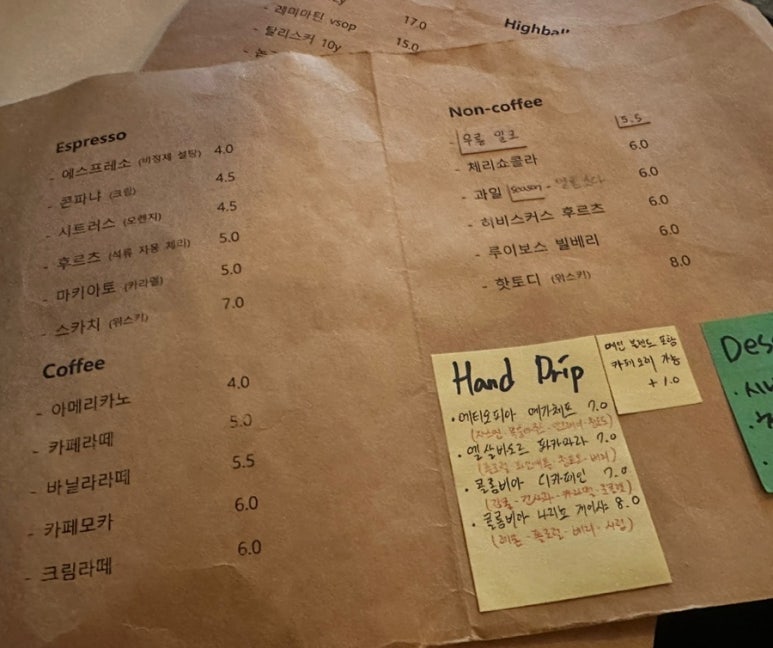 레미마틴 vsop 17.0
탈리스커 10y 15.0
Highball
Espresso
- 에스프레소 (비정제 설탕) 4.0
- 콘파냐 (크림) 4.5
- 시트러스 (오렌지) 4.5
- 후르츠 (석류 자몽 체리) 5.0
- 마키아토 (카라멜) 5.0
- 스카치 (위스키) 7.0
Coffee
- 아메리카노 4.0
- 카페라떼 5.0
- 바닐라라떼 5.5
- 카페모카 6.0
- 크림라떼 6.0
Non-coffee
밀크 5.5
- 체리쇼콜라 6.0
- 과일 season 6.0
- 히비스커스 후르츠 6.0
- 루이보스 빌베리 6.0
- 핫토디 (위스키) 8.0
Hand Drip
· 에티오피아 예가체프 7.0
· 엘살바도르 파카마라 7.0
· 콜롬비아 디카페인 7.0
· 콜롬비아 나리뇨 게이샤 8.0
(레몬 · 플로럴 · 베리 · 시럽)
카페오레 가능
+ 1.0